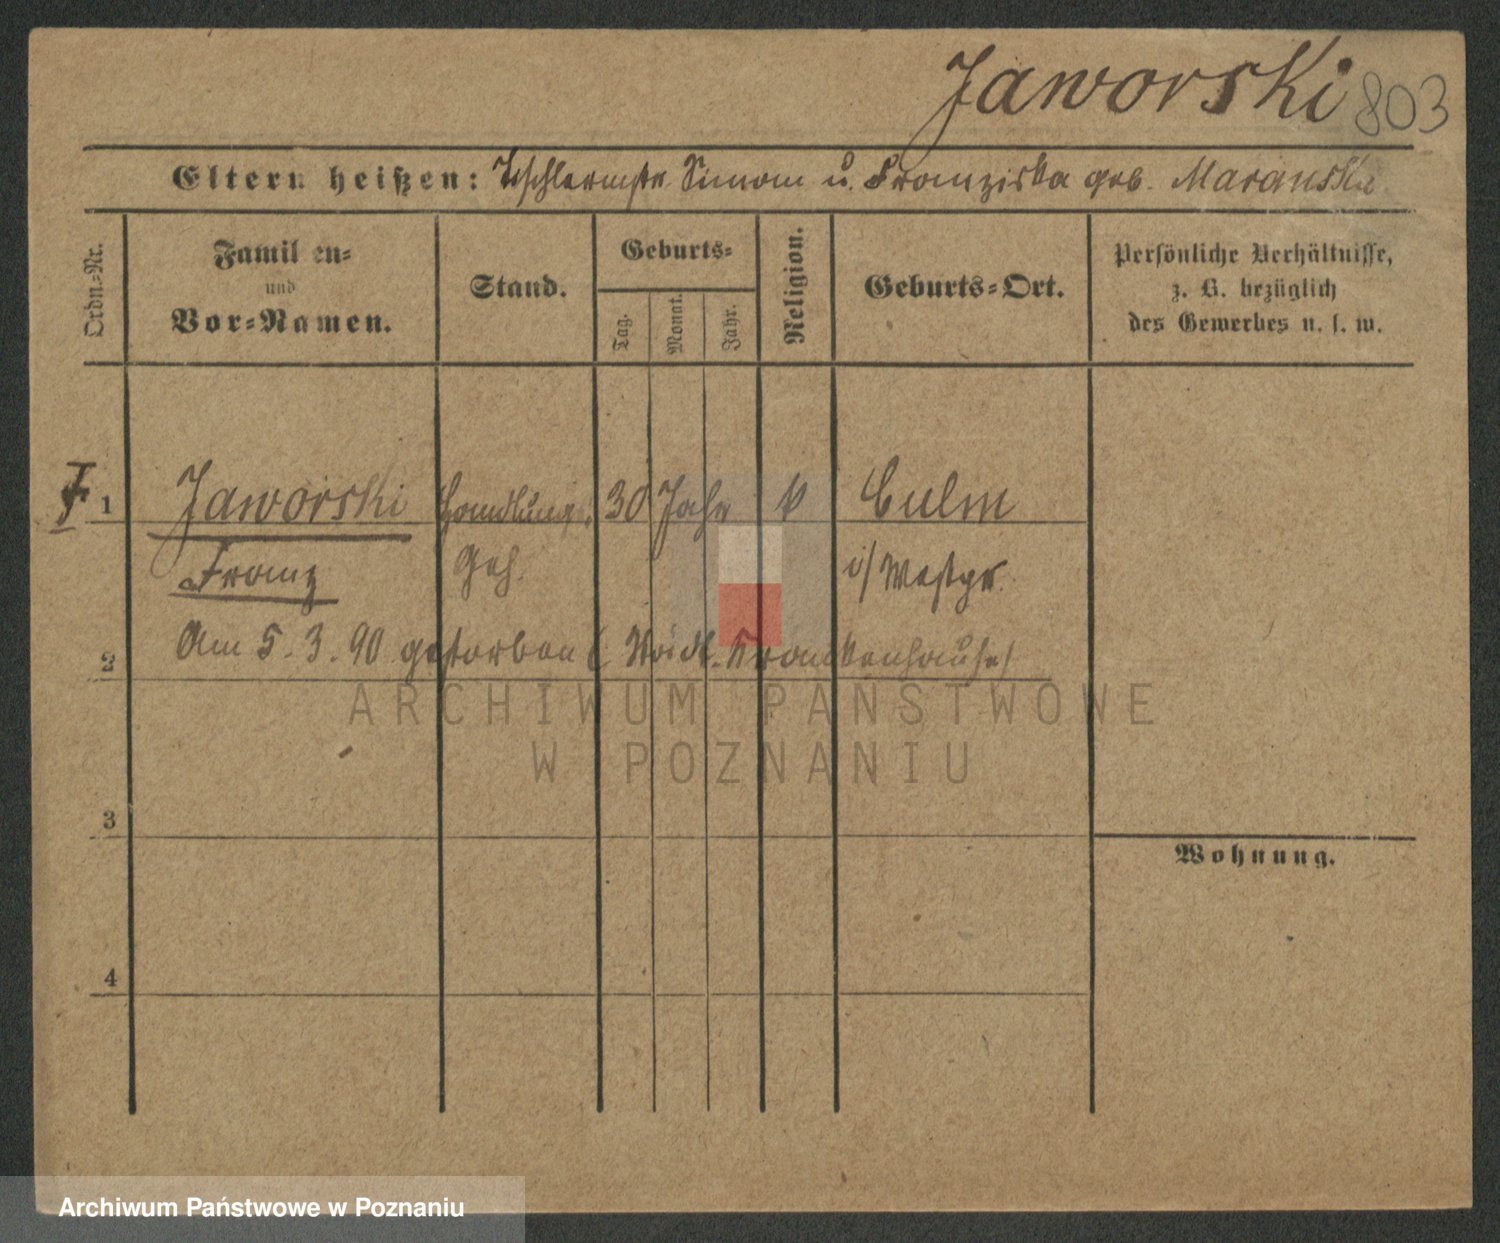 Jaworski 803
Eltern heißen: Tischlermstr. Simon u. Franziska geb. Maranska
Ordn.-Nr.
Familien-
und
Vor-Namen.
Stand.
Geburts-
Tag.
Monat.
Jahr.
Religion.
Geburts-Ort.
Persönliche Verhältnisse,
z. B. bezüglich
des Gewerbes u. s. w.
1 Jaworski Handlung. 30 Jahr k Culm
Franz Geh. i/Westpr.
2 Am 5. 3. 90 gestorben (Städt. Krankenhause)
ARCHIWUM PAŃSTWOWE
W POZNANIU
3
Wohnung.
4
Archiwum Państwowe w Poznaniu